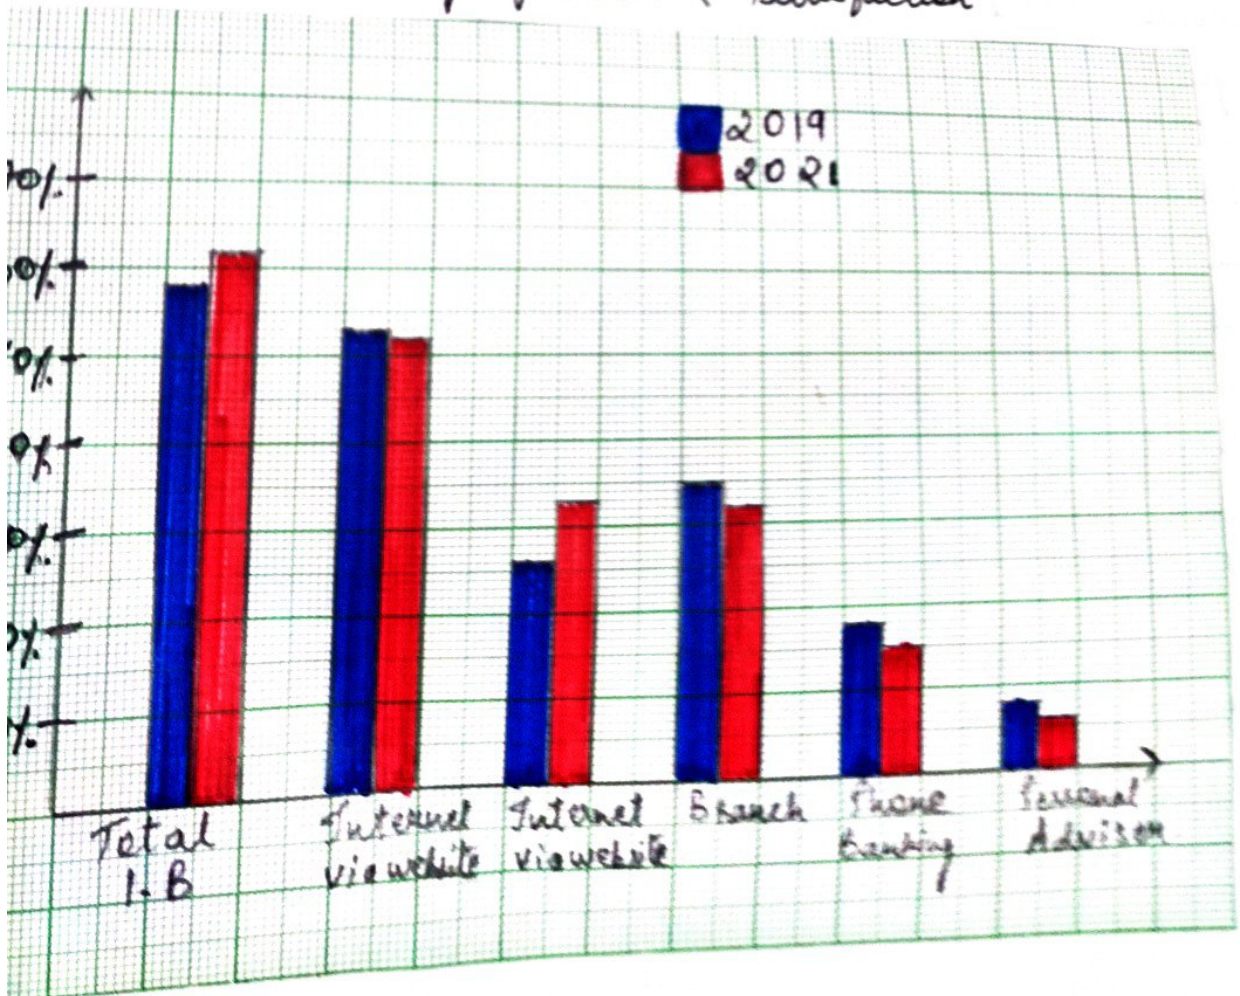 2019
2021
0%.
0%.
0%.
0%.
0%.
%.
%.
Total
I. B
Internet
via website
Internet
via website
Branch
Phone
Banking
Personal
Advisor